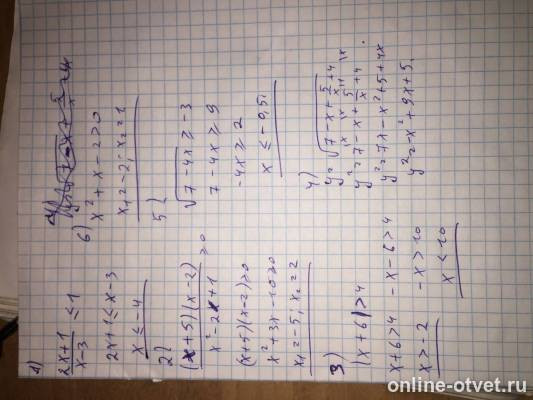 1)
(2x+1)/(x-3) ≤ 1
2x+1 ≤ x-3
x ≤ -4
2)
((x+5)(x-2))/(x²-2x+1) ≥ 0
(x+5)(x-2) ≥ 0
x²+3x-10 ≥ 0
x₁=-5; x₂=2
3)
|x+6|>4
x+6>4 -x-6>4
x>-2 -x>10
x<10
6)
x²+x-2>0
x₁=-2; x₂=1
5)
√(7-4x) ≥ -3
7-4x ≥ 9
-4x ≥ 2
x ≤ -0,5
4)
y=√(7-x+5/x+4)
y²=7-x+5/x+4
y²=7x-x²+5+4x
y²=-x²+9x+5
online-otvet.ru